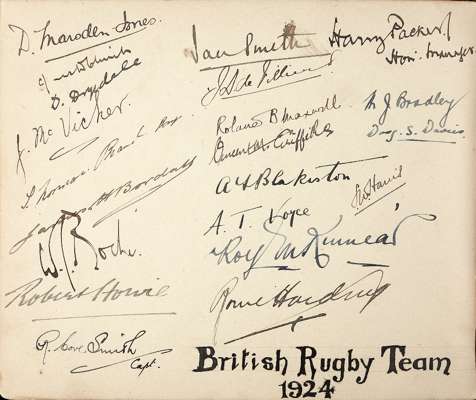 D. Marsden Jones.
D. Drysdale
J. McVicker.
W J Roche.
Robert Howie
R. Cove Smith
Capt.
Ian Smith
Roland B Maxwell
Vincent M Griffiths
A F Blakiston
A. T. Voyce
Roy M Kinnear
Rowe Harding
Harry Packer
Hon: Manager
M J Bradley
Doug. S. Davies
British Rugby Team
1924